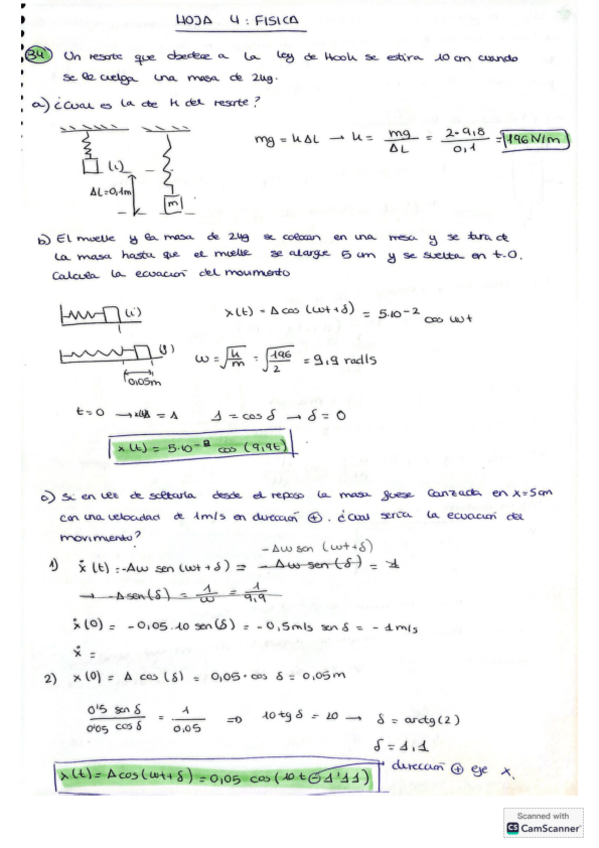 HOJA 4: FISICA
34 Un resorte que obedece a la ley de Hook se estira 10 cm cuando
se le cuelga una masa de 2kg.
a) ¿Cual es la cte K del resorte?
mg = K ΔL → K = mg/ΔL = 2·9,8/0,1 = 196 N/m
(i)
ΔL=0,1m
m
b) El muelle y la masa de 2kg se colocan en una mesa y se tira de
la masa hasta que el muelle se alargue 5 cm y se suelta en t=0.
Calcula la ecuacion del movimiento
(i)
x(t) = A cos (ωt+δ) = 5·10⁻² cos ωt
(f)
0,05m
ω = √(k/m) = √(196/2) = 9,9 rad/s
t=0 → x(t) = A 1 = cos δ → δ = 0
x(t) = 5·10⁻² cos (9,9t)
c) Si en vez de soltarla desde el reposo la masa fuese lanzada en x=5cm
con una velocidad de 1m/s en dirección ⊕. ¿cual seria la ecuacion del
movimiento?
-Aω sen (ωt+δ)
1) ẋ(t) = -Aω sen (ωt+δ) = -Aω sen (δ) = 1
→ -A sen(δ) = 1/ω = 1/9,9
ẋ(0) = -0,05·10 sen(δ) = -0,5m/s sen δ = -1m/s
ẋ =
2) x(0) = A cos (δ) = 0,05·cos δ = 0,05m
0'5 sen δ / 0'05 cos δ = 1/0,05 => 10 tg δ = 20 → δ = arctg(2)
δ = 1,1
x(t) = A cos(ωt+δ) = 0,05 cos (10t ⊖ 1'11) → dirección ⊕ eje x.
Scanned with
CS CamScanner